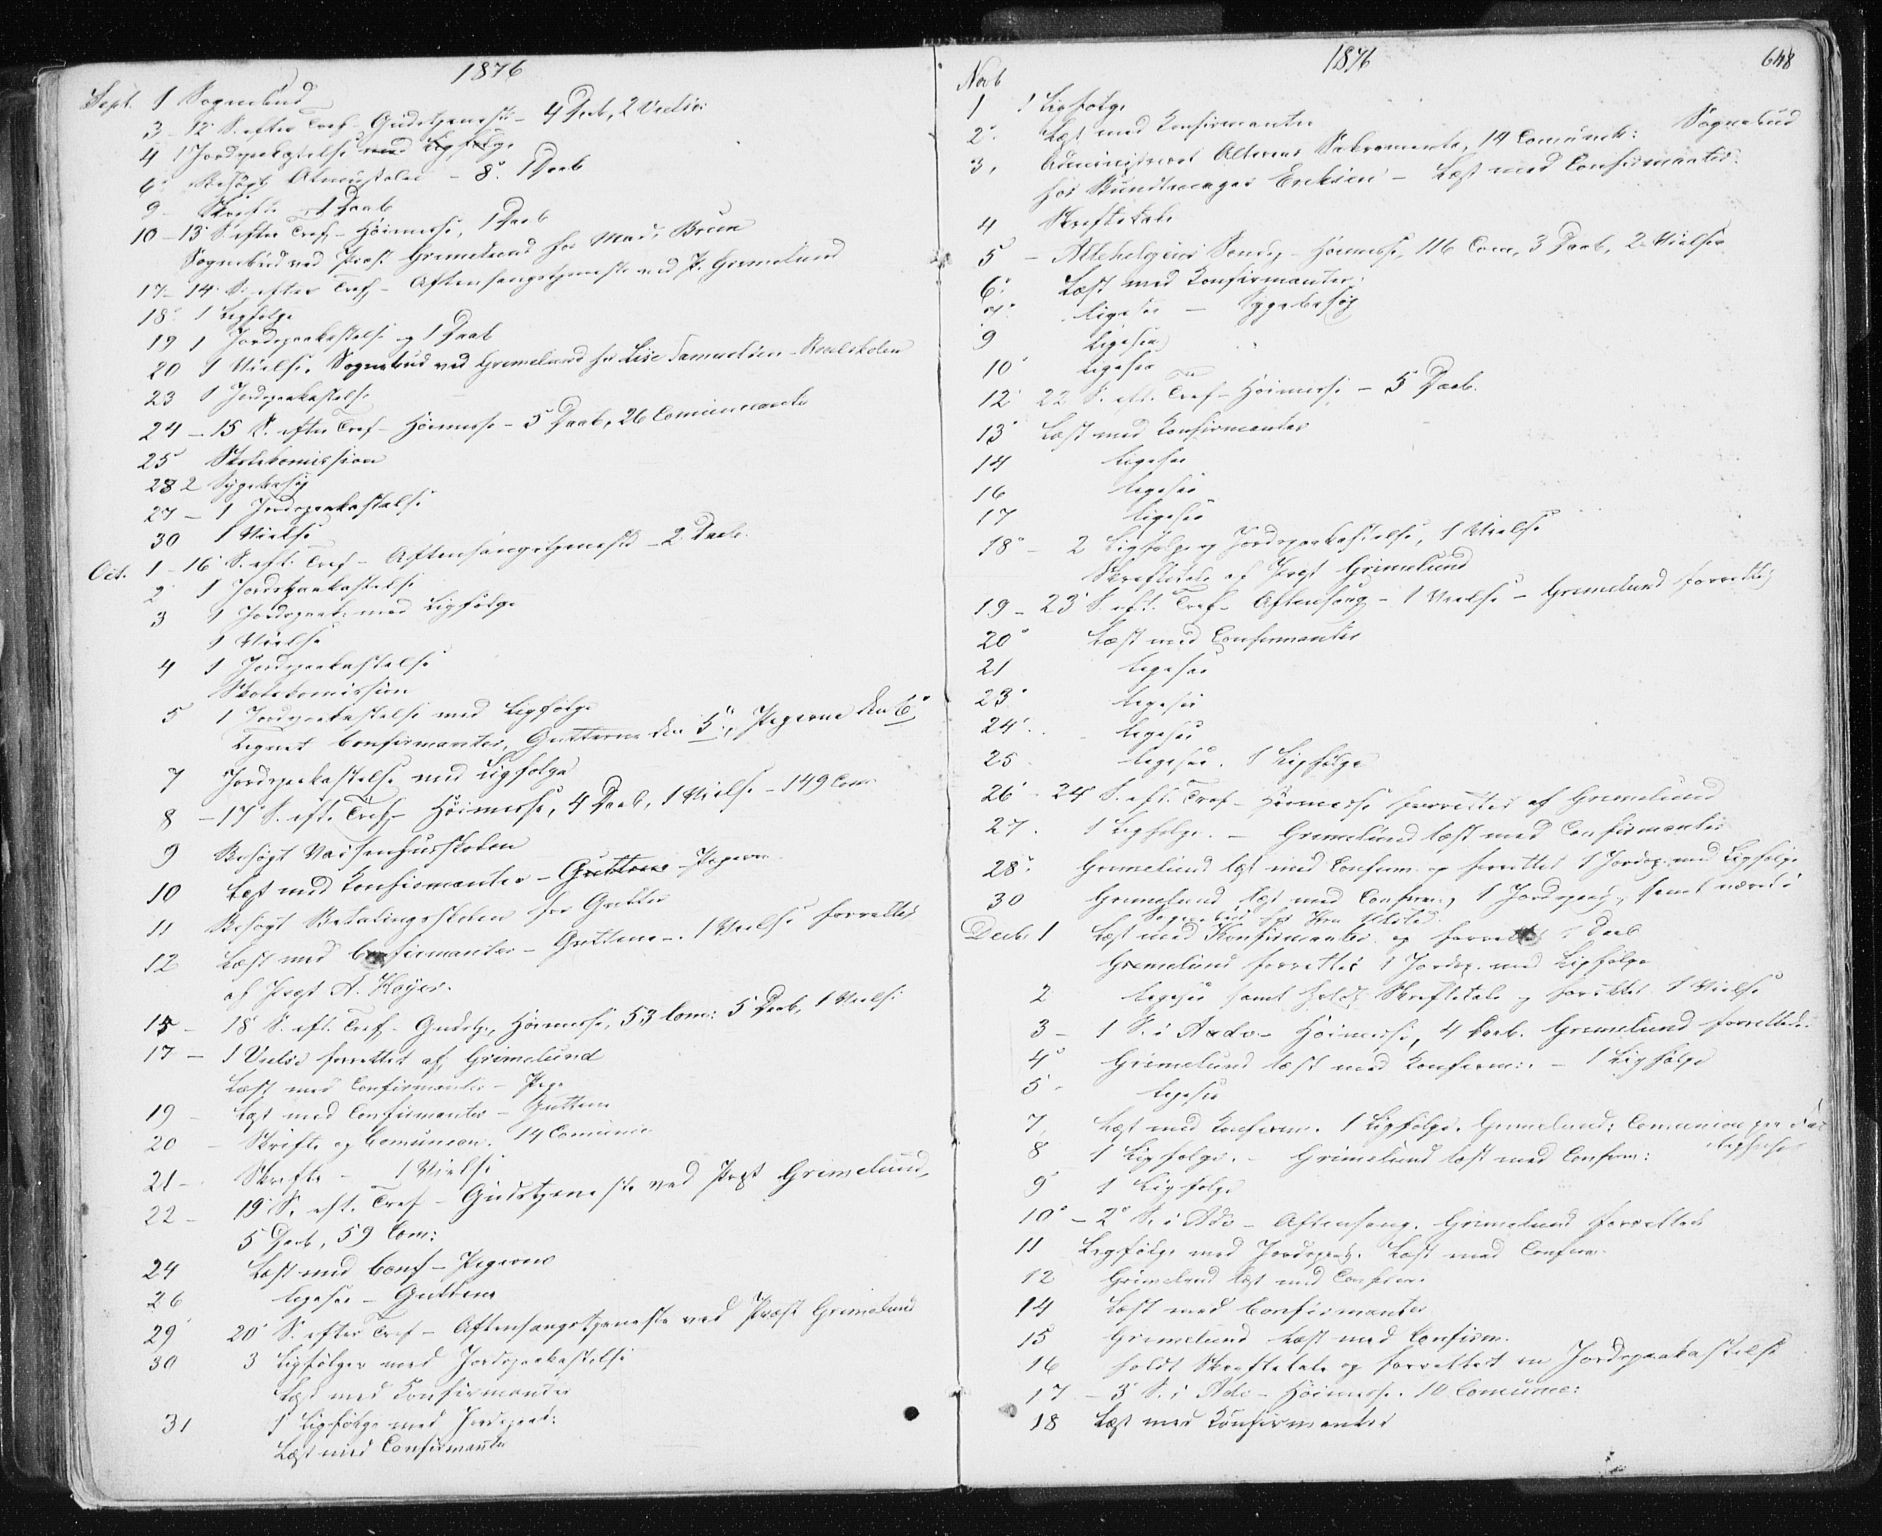 1876
Sept. 1 Sognebud
3 - 12 S. efter Tref - Gudstjeneste - 4 Daab, 2 Vielser
4 1 Jordpaakastelse med Ligfølge
6 Besøgt - 8. 1 Daab
9 - Skrifte - 1 Daab
10 - 13 S. efter Tref - Høimesse, 1 Daab
Sognebud ved Præst Grimelund hos Mad. Bruun
17 - 14 S. efter Tref - Aftensangstjeneste ved P. Grimelund
18 1 Ligfølge
19 1 Jordpaakastelse og 1 Daab
20 1 Vielse. Sognebud ved Grimelund hos Lise Samuelsen - Realskolen
23 1 Jordpaakastelse
24 - 15 S. efter Tref - Høimesse - 5 Daab, 26 Comunicanter
25 Skolekomission
28 2 Sygebesøg
27 - 1 Jordspaakastelse
30 1 Vielse
Oct. 1 - 16 S. eft. Tref - Aftensangstjeneste - 2 Daab.
2 1 Jordspaakastelse
3 1 Jordspaak. med Ligfølge
1 Vielse
4 1 Jordpaakastelse
Skolekomission
5 1 Jordpaakastelse med Ligfølge
Tegnet Confirmanter, Gutterne den 5", Pigerne den 6"
7 Jordpaakastelse med Ligfølge
8 - 17 S. eft. Tref - Høimesse, 4 Daab, 1 Vielse - 149 Com.
9 Besøgt Vaisenhusskolen
10 Læst med Konfirmanter - Gutterne Pigerne
11 Besøgt Betalingsskolen for Gutter
12 Læst med Confirmanter - Gutterne -. 1 Vielse forrettet
af Præst A. Høyer.
15 - 18 S. eft. Tref - Gudstj., Høimesse, 53 Com: 5 Daab, 1 Vielse
17 - 1 Vielse forrettet af Grimelund
Læst med Confirmanter - Pige
19 - Læst med Confirmanter - Guttene
20 - Skrifte og Comunion. 14 Comunic
21 - Skrifte - 1 Vielse
22 - 19 S. eft. Tref - Gudstjeneste ved Præst Grimelund,
5 Daab, 59 Com:
24 Læst med Conf - Pigerne
26 ligesaa - Guttene
29 20 S. efter Tref - Aftensangstjeneste ved Præst Grimelund
30 3 Ligfølger med Jordspaakastelse
Læst med Konfirmander
31 1 Ligfølge med Jordspaak:
Læst med Confirmanter
1876
648
Novb
1 1 Ligfølge
2 Læst med Konfirmanter
3, Administreret Alterens Sakramente, 14 Comunik: Sognebud
hos Bundtmager Eriksen - Læst med Confirmanter.
4 Skriftetale
5 - Allehelgens Søndag - Høimesse, 116 Com, 3 Daab, 2 Vielser
6 Læst med Konfirmanter
7 ligesaa - Sygebesøg
9 ligesaa
10 ligesaa
12 22 S. eft. Tref - Høimesse - 5 Daab.
13 Læst med Konfirmanter
14 ligesaa
16 ligesaa
17 ligesaa
18 - 2 Ligfølge og Jordspaakastelse, 1 Vielse
Skriftetale af Præst Grimelund
19 - 23 S. eft. Tref - Aftensang - 1 Vielse - Grimelund forrettet
20 Læst med Confirmanter
21 ligesaa
23 ligesaa
24 ligesaa
25 ligesaa. 1 Ligfølge
26 - 24 S. eft. Tref - Høimesse forrettet af Grimelund
27. 1 Ligfølge. - Grimelund læst med Confirmanter
28 Grimelund læst med Confirm. og forrettet 1 Jordsp. med Ligfølge
30 Grimelund læst med Confirm:, 1 Jordspaak, samt været i
Sognebud hos
Decb. 1 Læst med Konfirmanter og forrettet 1 Daab
Grimelund forrettet 1 Jordsp. med Ligfølge
2 ligesaa samt holdt Skriftetale og forrettet 1 Vielse
3 - 1 S. i Adv - Høimesse, 4 Daab. Grimelund forrettede.
4 Grimelund læst med Konfirm:. - 1 Ligfølge
5 ligesaa
7. Læst med Konfirm. 1 Ligfølge. Grimelund: Comunion paa
8 1 Ligfølge. - Grimelund læst med Confirm:
9 1 Ligfølge
10 - 2 S. i Adv - Aftensang. Grimelund forrettede
11 Ligfølge med Jordspaak. Læst med Confirm.
12 Grimelund læst med Confirm.
14 Læst med Confirmanter
15 Grimelund læst med Confirm.
16 holdt Skriftetale og forrettet en Jordspaakastelse
17 - 3 S. i Adv - Høimesse. 10 Comunic:
18 Læst med Konfirmanter